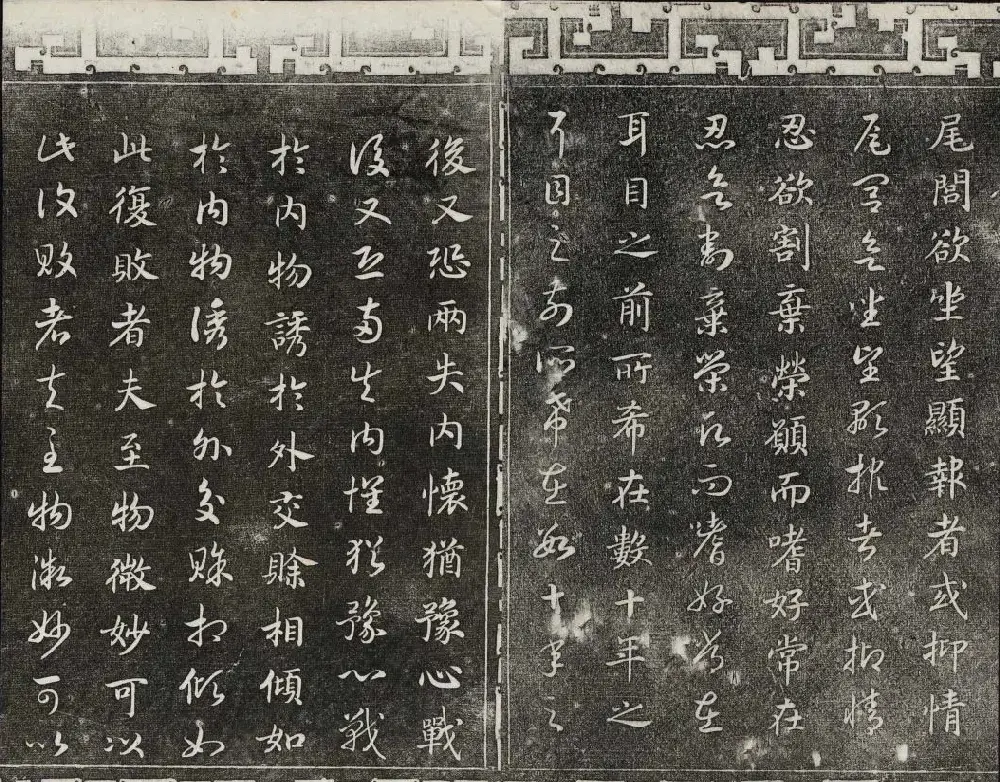 尾閭欲坐望顯報者或抑情
尾閭欲坐望顯報者或抑情
忍欲割棄榮願而嗜好常在
忍欲割棄榮願而嗜好常在
耳目之前所希在數十年之
耳目之前所希在數十年之
後又恐兩失内懷猶豫心戰
後又恐兩失内懷猶豫心戰
於内物誘於外交賒相傾如
於内物誘於外交賒相傾如
此復敗者夫至物微妙可以
此復敗者夫至物微妙可以